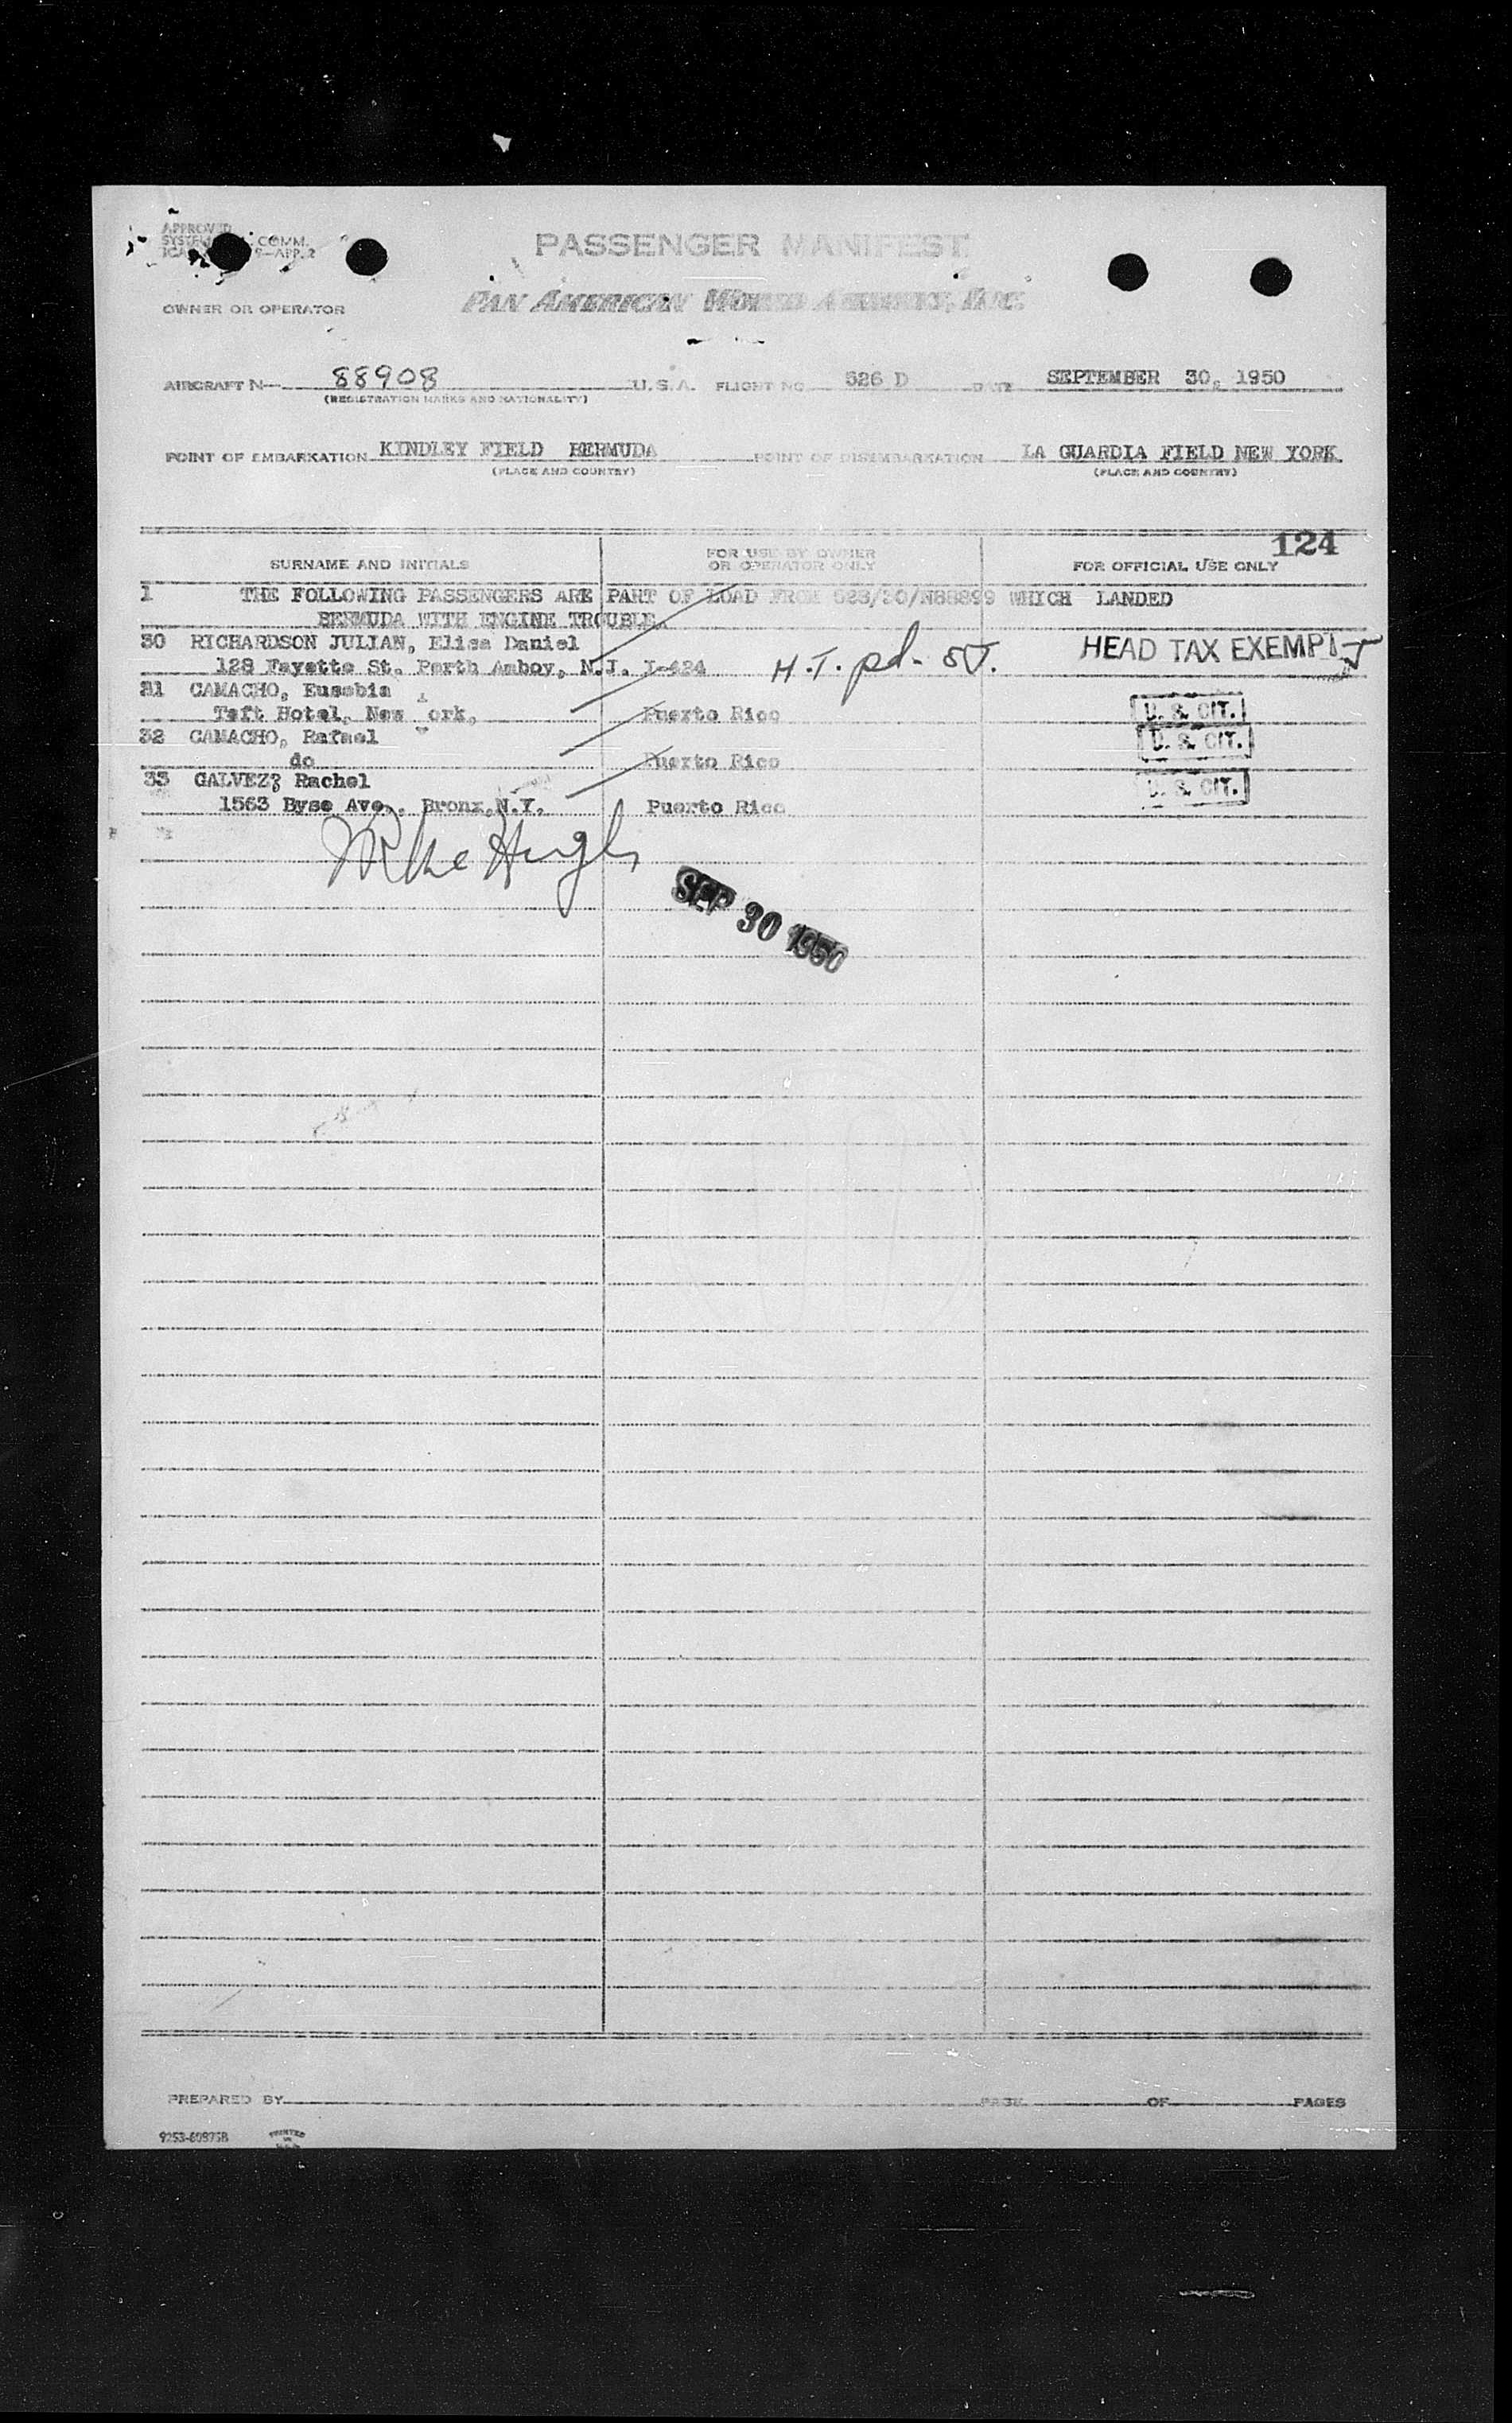 APPROVED
COMM.
9-APP. 2
PASSENGER MANIFEST
PAN AMERICAN WORLD AIRWAYS, INC.
OWNER OR OPERATOR
AIRCRAFT N— 88908 U.S.A. FLIGHT NO. 526 D DATE SEPTEMBER 30, 1950
(REGISTRATION MARKS AND NATIONALITY)
POINT OF EMBARKATION KINDLEY FIELD BERMUDA POINT OF DISEMBARKATION LA GUARDIA FIELD NEW YORK
(PLACE AND COUNTRY) (PLACE AND COUNTRY)
124
SURNAME AND INITIALS FOR USE BY OWNER OR OPERATOR ONLY FOR OFFICIAL USE ONLY
1 THE FOLLOWING PASSENGERS ARE PART OF LOAD FROM 528/30/N88899 WHICH LANDED
BERMUDA WITH ENGINE TROUBLE.
30 RICHARDSON JULIAN, Elisa Daniel HEAD TAX EXEMPT
128 Fayette St. Perth Amboy, N.J. I-424 H.T. pd.
31 CAMACHO, Eusebia
Taft Hotel, New ork, Puerto Rico U. S. CIT.
32 CAMACHO, Rafael U. S. CIT.
do Puerto Rico
33 GALVEZ? Rachel U. S. CIT.
1563 Byse Ave., Bronx,N.Y. Puerto Rico
SEP 30 1950
PREPARED BY PAGE OF PAGES
PRINTED
IN